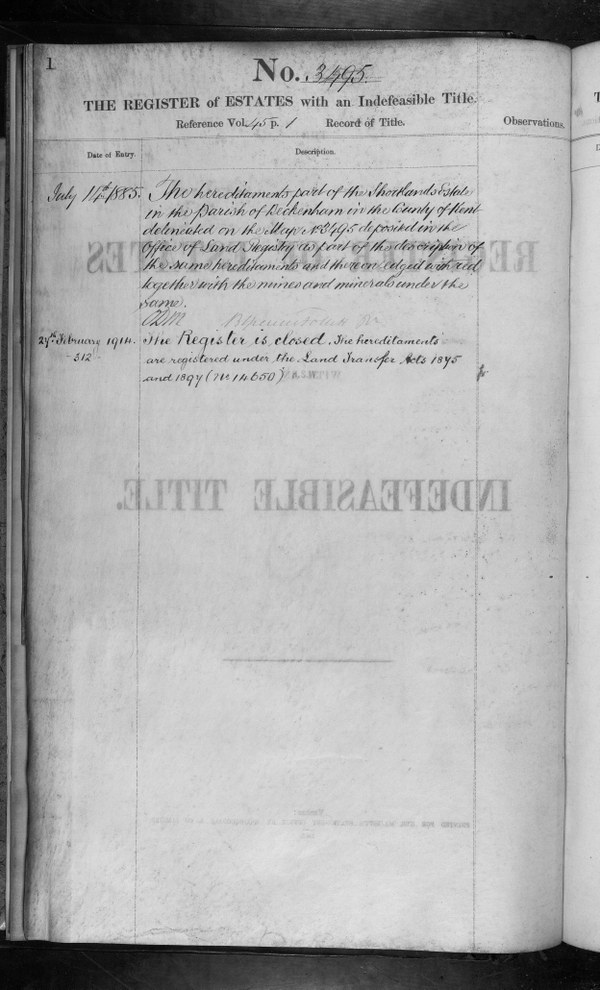 1
No. 3495.
THE REGISTER of ESTATES with an Indefeasible Title.
Reference Vol. 45 p. 1 Record of Title.
Observations.
Date of Entry.
Description.
July 14th 1885.
The hereditaments part of the Shortlands Estate
in the Parish of Beckenham in the County of Kent
delineated on the Map No 3495 deposited in the
Office of Land Registry as part of the description of
the same hereditaments and thereon edged with red
together with the mines and minerals under the
same.
27th February 1914.
312
The Register is closed. The hereditaments
are registered under the Land Transfer Acts 1875
and 1897 (No 14650)
REGISTER
ESTATES
INDEFEASIBLE TITLE.